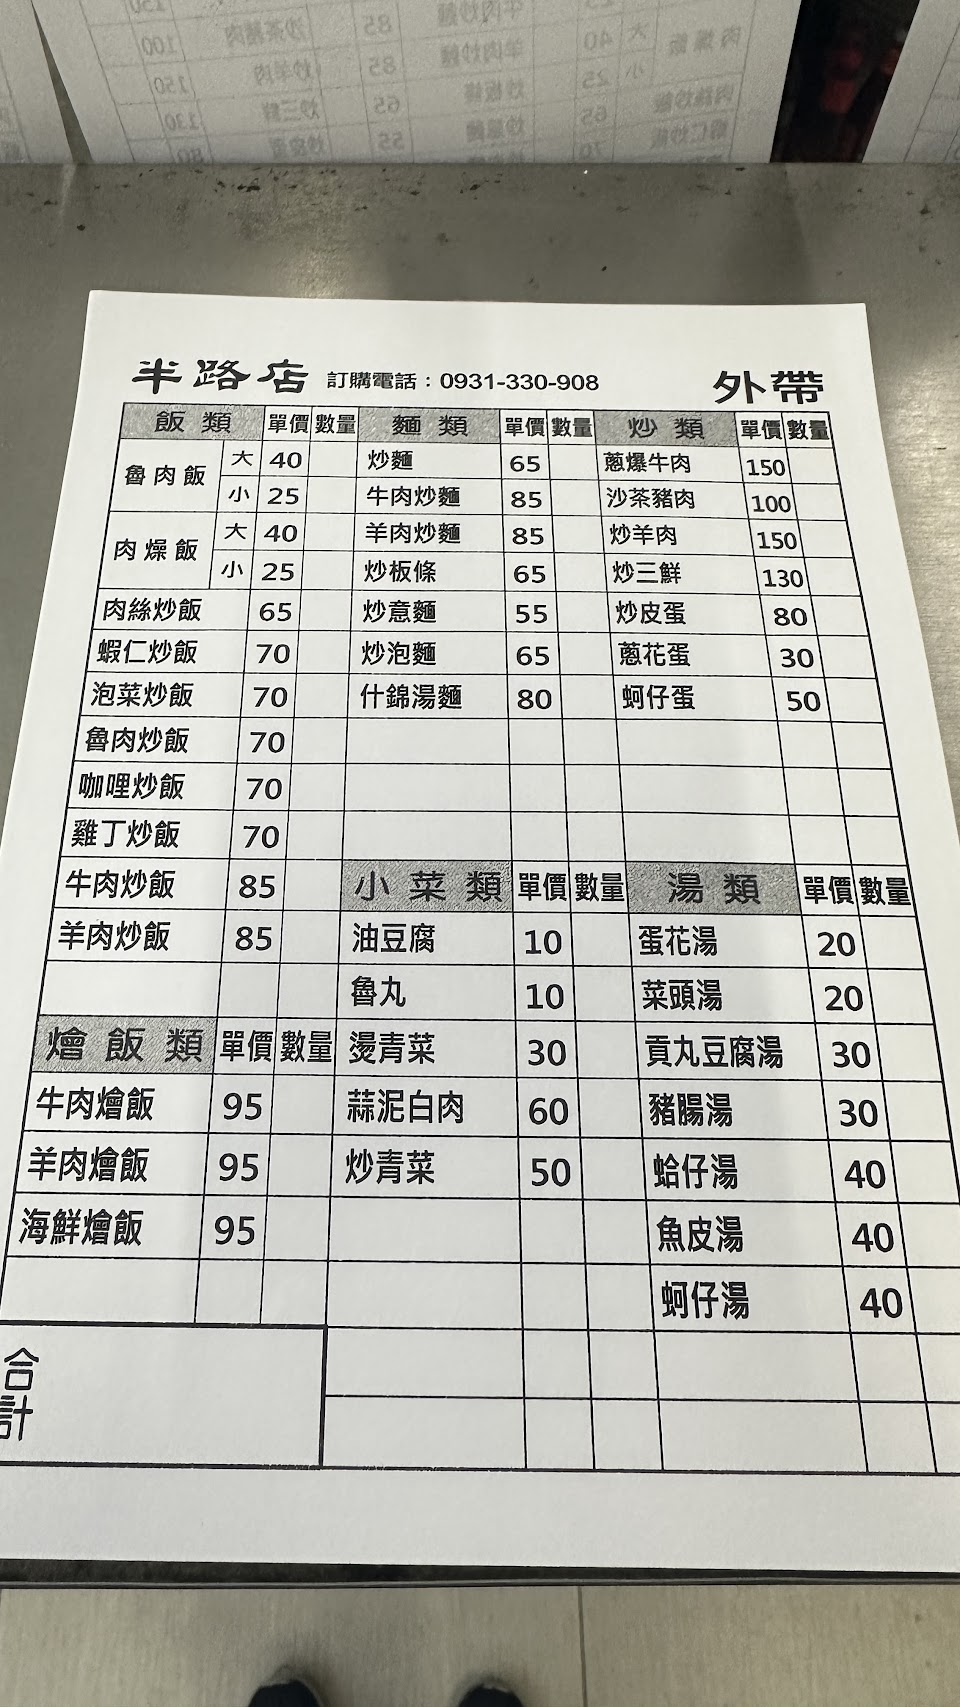 半路店 訂購電話：0931-330-908 外帶
飯類 單價 數量 麵類 單價 數量 炒類 單價 數量
魯肉飯 大 40 炒麵 65 蔥爆牛肉 150
小 25 牛肉炒麵 85 沙茶豬肉 100
肉燥飯 大 40 羊肉炒麵 85 炒羊肉 150
小 25 炒板條 65 炒三鮮 130
肉絲炒飯 65 炒意麵 55 炒皮蛋 80
蝦仁炒飯 70 炒泡麵 65 蔥花蛋 30
泡菜炒飯 70 什錦湯麵 80 蚵仔蛋 50
魯肉炒飯 70
咖哩炒飯 70
雞丁炒飯 70
牛肉炒飯 85 小菜類 單價 數量 湯類 單價 數量
羊肉炒飯 85 油豆腐 10 蛋花湯 20
魯丸 10 菜頭湯 20
燴飯類 單價 數量 燙青菜 30 貢丸豆腐湯 30
牛肉燴飯 95 蒜泥白肉 60 豬腸湯 30
羊肉燴飯 95 炒青菜 50 蛤仔湯 40
海鮮燴飯 95 魚皮湯 40
蚵仔湯 40
合計